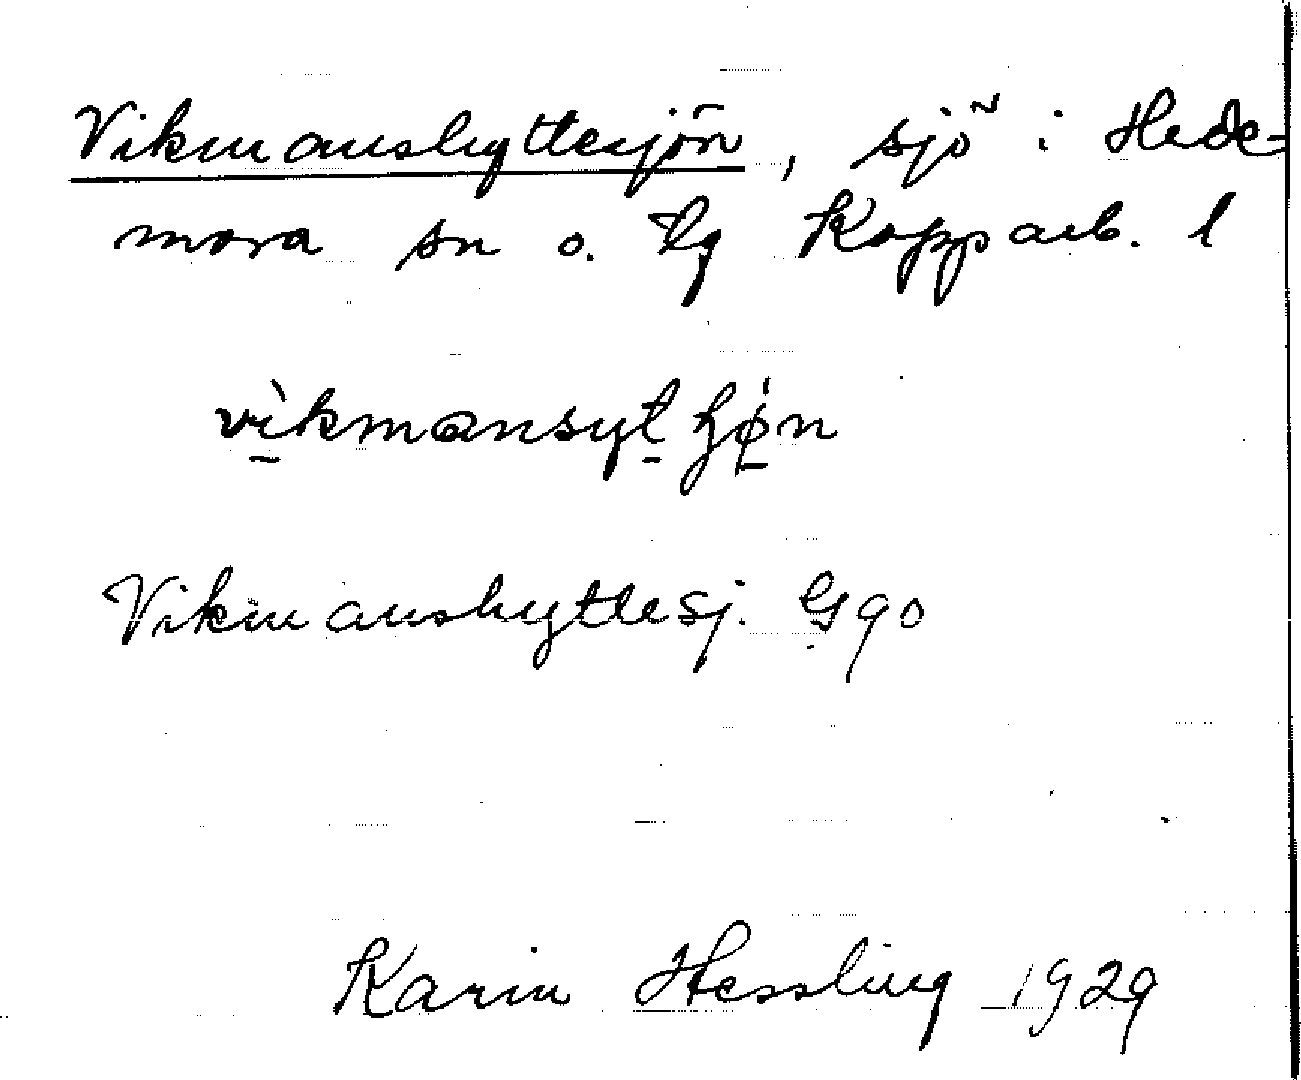 Vikmanshyttesjön, sjö i Hede-
mora sn o. tg Kopparb. l
vìkmansyt ʃø̀n
Vikmanshyttesj. G90
Karin Hessling 1929